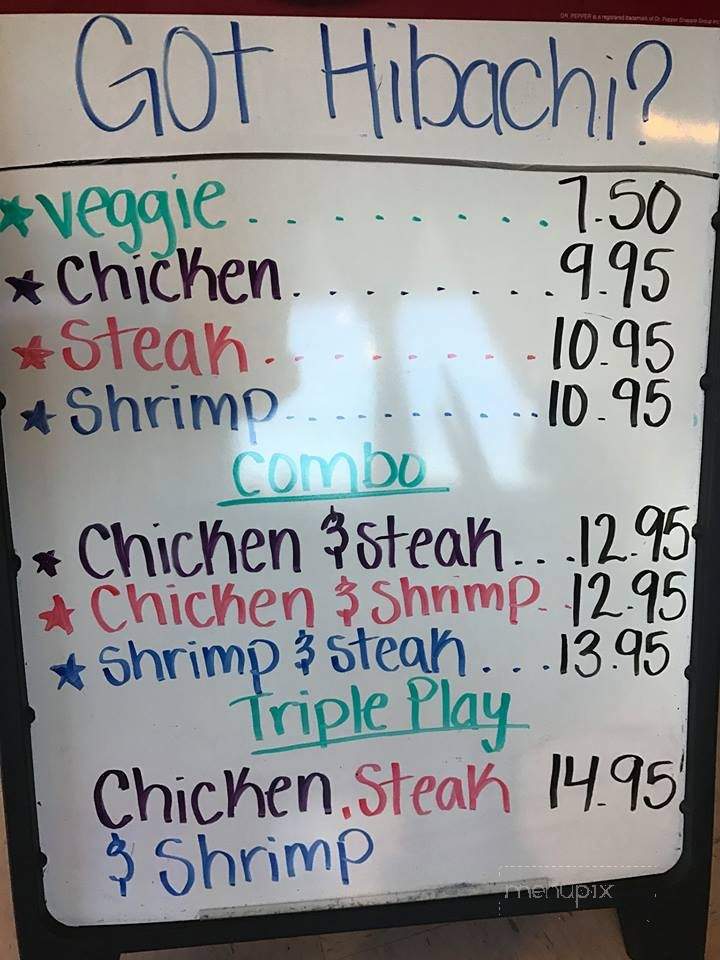 DR. PEPPER is a registered trademark of Dr. Pepper Snapple Group Inc
Got Hibachi?
★ Veggie . . . . . . . . 7.50
★ Chicken . . . . . . . . 9.95
★ Steak . . . . . . . . 10.95
★ Shrimp . . . . . . . . . . 10.95
Combo
★ Chicken & Steak . . . 12.95
★ Chicken & Shrimp . . 12.95
★ Shrimp & Steak . . . 13.95
Triple Play
Chicken, Steak 14.95
& Shrimp
menupix